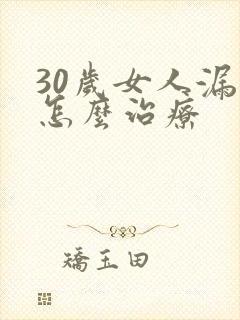 30歲女人漏
怎麼治療
矯玉田